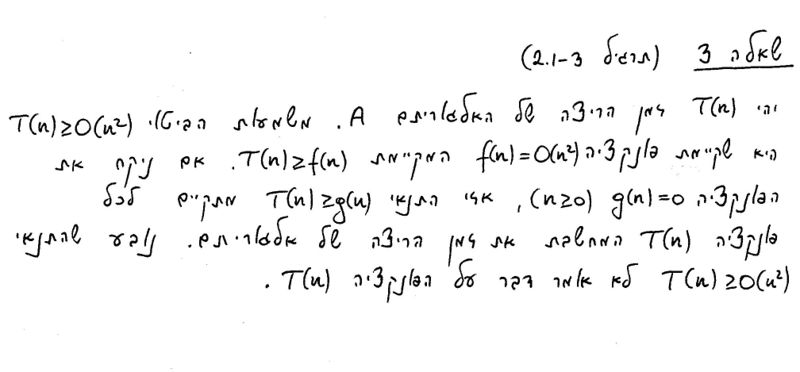 שאלה 3 (תרגיל 2.1-3)
יהי T(n) זמן הריצה של האלגוריתם A. משמעות הביטוי T(n)≥O(n²)
היא שקיימת פונקציה f(n)=O(n²) המקיימת T(n)≥f(n). אם ניקח את
הפונקציה g(n)=0 (n≥0), אזי התנאי T(n)≥g(n) מתקיים לכל
פונקציה T(n) המחשבת את זמן הריצה של אלגוריתם. נובע שהתנאי
T(n)≥O(n²) לא אומר דבר על הפונקציה T(n).